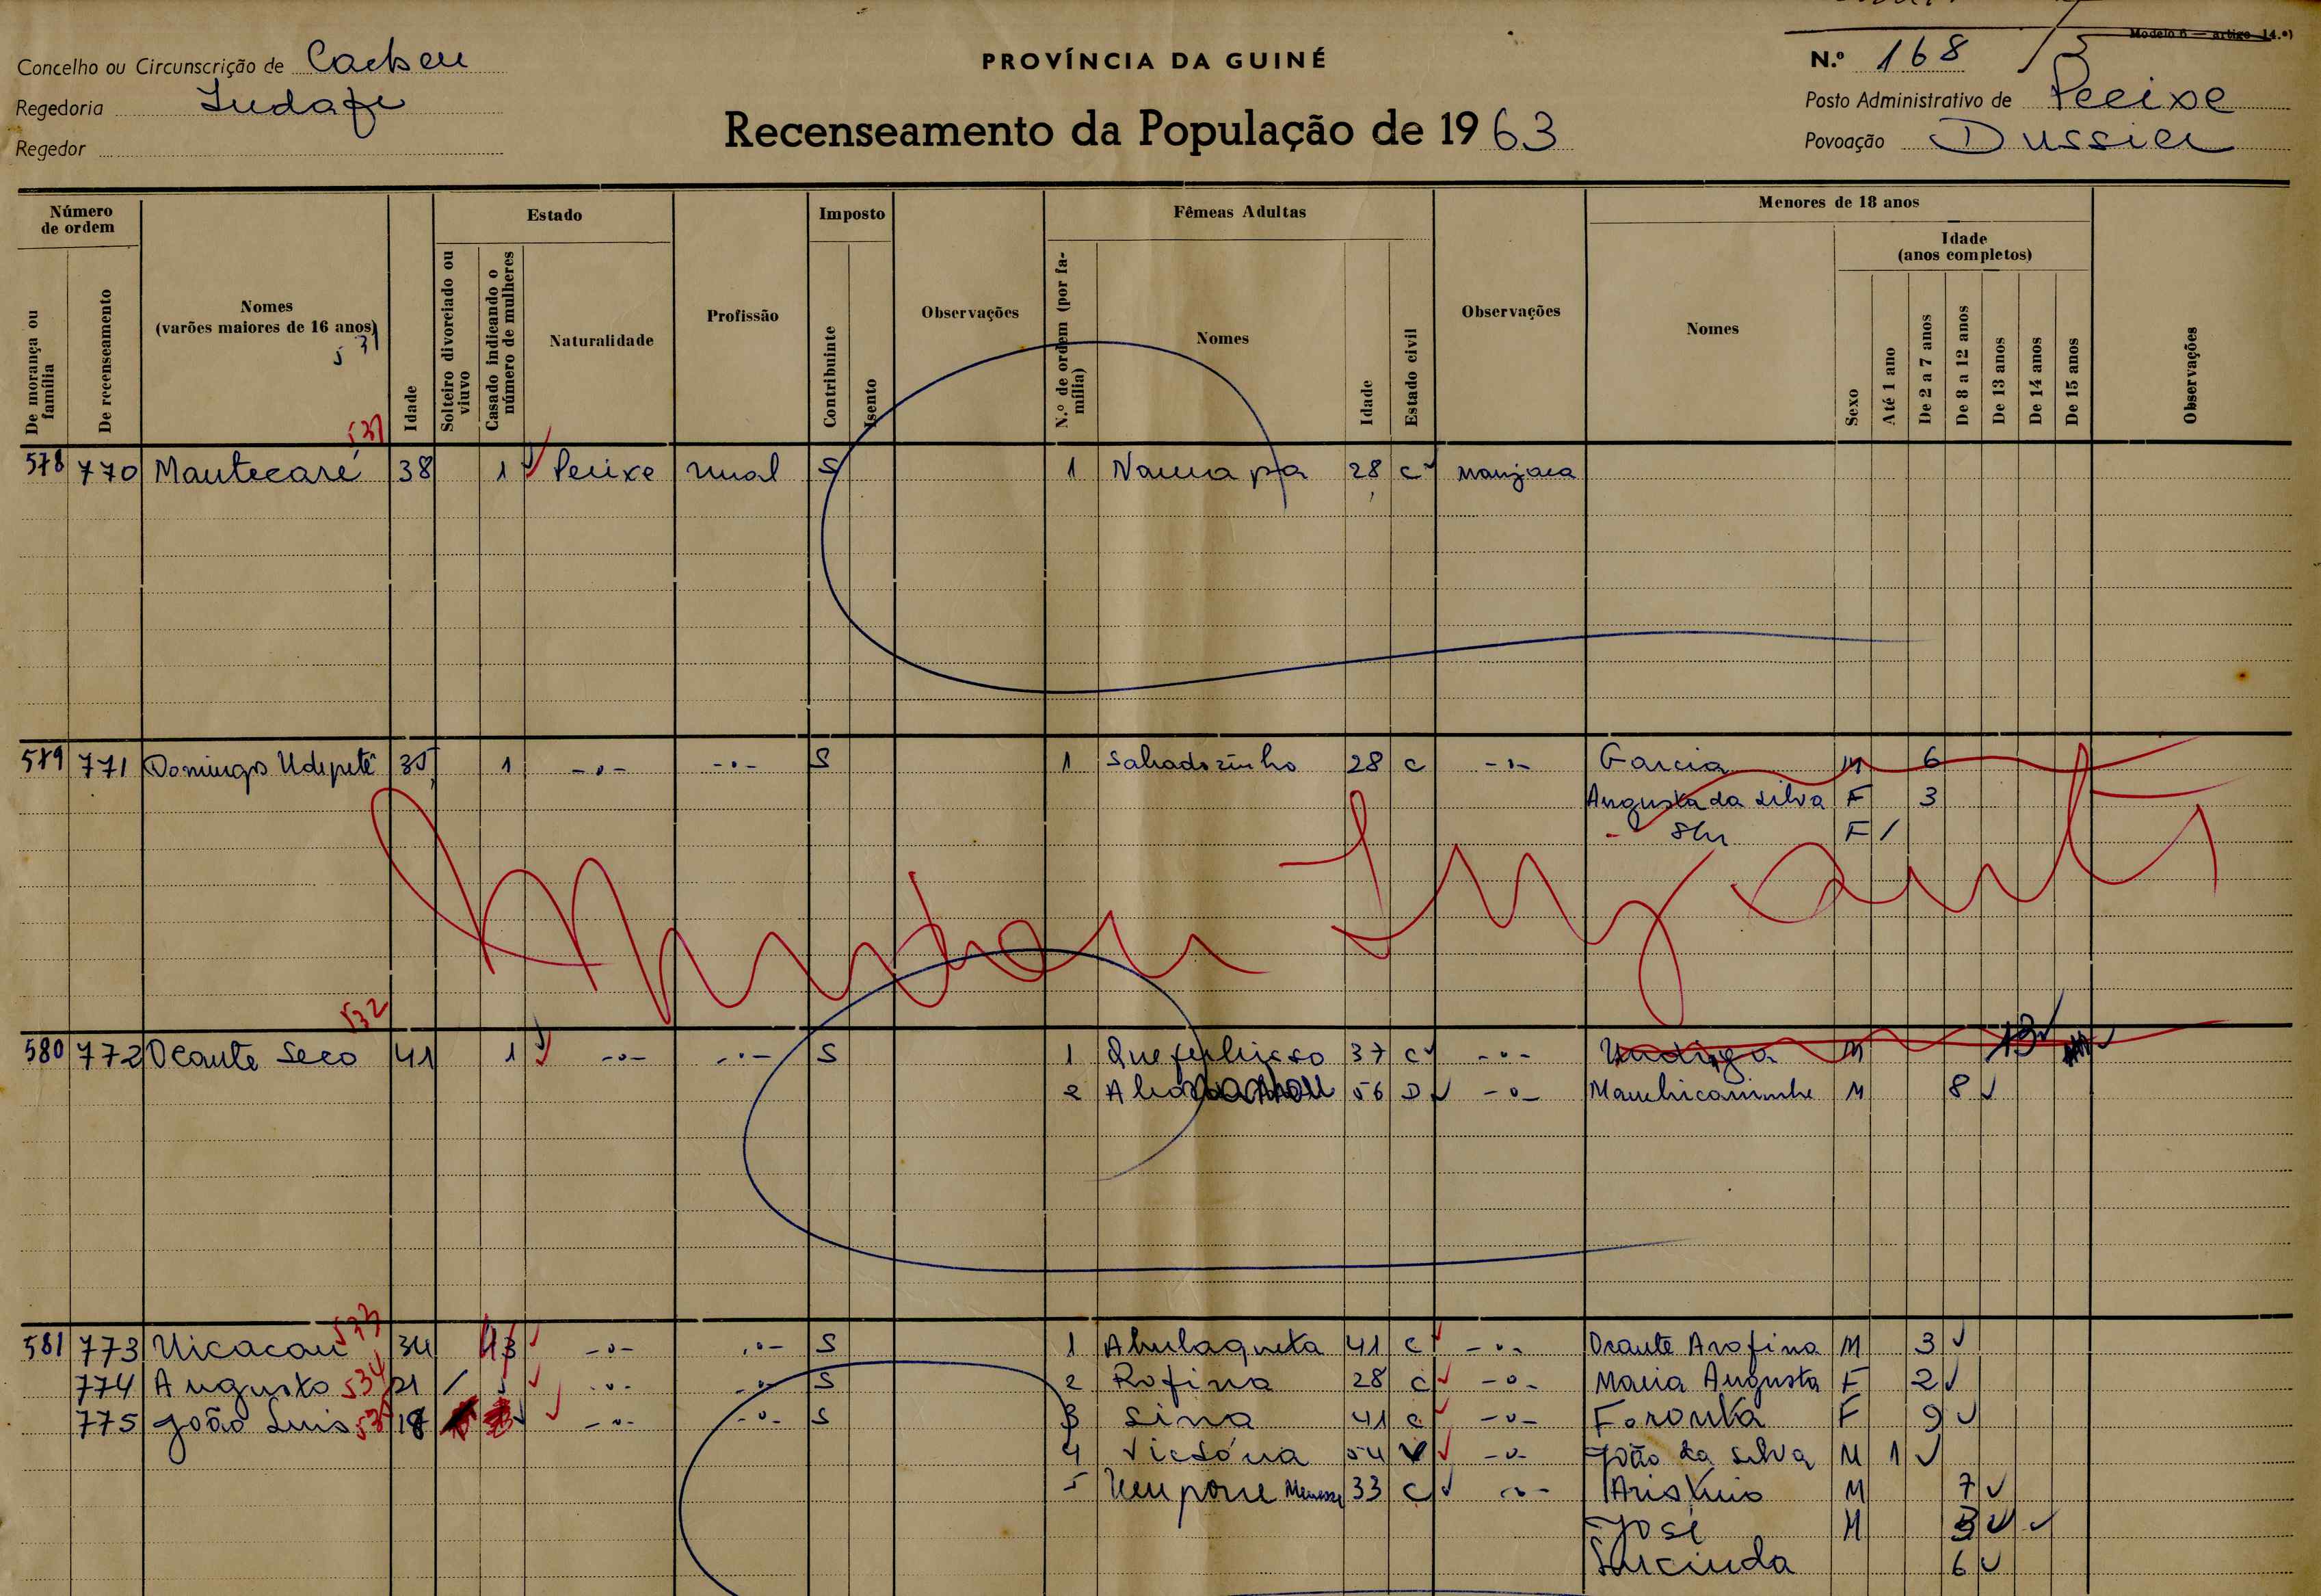 Modelo 6 — artigo 14.º)
Concelho ou Circunscrição de Cacheu
PROVÍNCIA DA GUINÉ
N.º 168
Regedoria
Posto Administrativo de Pecixe
Recenseamento da População de 1963
Regedor
Povoação
Número de ordem
De morança ou família
De recenseamento
Nomes
(varões maiores de 16 anos)
Idade
Estado
Solteiro divorciado ou viuvo
Casado indicando o número de mulheres
Naturalidade
Profissão
Imposto
Contribuinte
Isento
Observações
Fêmeas Adultas
N.º de ordem (por família)
Nomes
Idade
Estado civil
Observações
Menores de 18 anos
Nomes
Sexo
Idade
(anos completos)
Até 1 ano
De 2 a 7 anos
De 8 a 12 anos
De 13 anos
De 14 anos
De 15 anos
Observações
531
578 770 Mantecaré 38 1 Pecixe rural S 1 28 C manjaca
579 771 Domingos 35 1 -"- -"- S 1 28 C -"- Garcia M 6
Augusta da Silva F 3
F
532
580 772 Ocante Seco 41 1 -"- -"- S 1 37 C -"- M 13
2 56 D -"- M 8
533
581 773 34 3 -"- -"- S 1 Abulaqueta 41 C -"- Ocante Arofina M 3
774 Augusto 534 21 -"- -"- S 2 Rofina 28 C -"- Maria Augusta F 2
775 João Luis 535 18 -"- -"- S 3 Sina 41 C -"- F 9
4 Victória 54 V -"- João da Silva M 1
5 33 C -"- M 7
José M
Lucinda 6